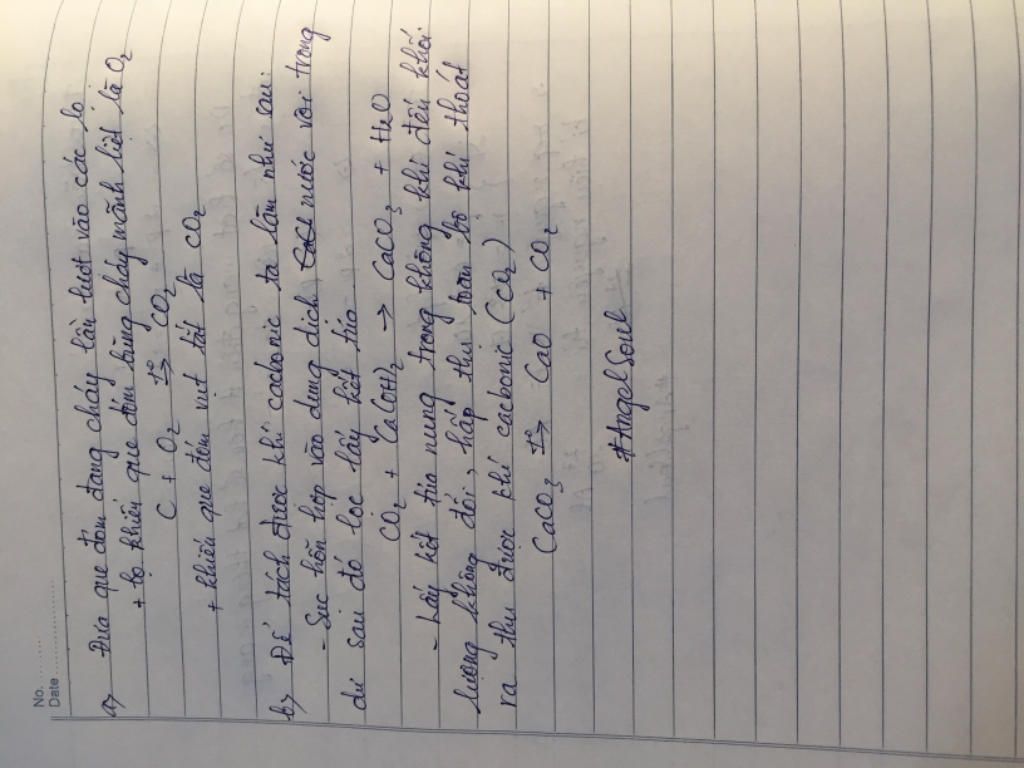 No. ..........
Date ....................
a> Đưa que đóm đang cháy lần lượt vào các lọ
+ lọ khiến que đóm bùng cháy mãnh liệt là O2
C + O2 t°→ CO2
+ khiến que đóm vụt tắt là CO2
b> Để tách được khí cacbonic ta làm như sau:
- Sục hỗn hợp vào dung dịch nước vôi trong
dư sau đó lọc lấy kết tủa
CO2 + Ca(OH)2 → CaCO3 + H2O
- Lấy kết tủa nung trong không khí đến khối
lượng không đổi, hấp thu toàn bộ khí thoát
ra thu được khí cacbonic (CO2)
CaCO3 t°→ CaO + CO2
#AngelSoul